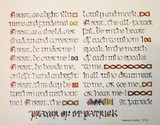 Christ, as a light illu-
mine and guide me!
Christ, as a shield
shadow and cover me!
Christ be under me!
Christ be over me!
Christ be beside me
on left hand and right
Christ be before me be-
hind me, about me!
Christ this day be with-
in and without me!
Christ, the lowly and
meek, Christ, the all-
powerful, be in the
heart of each to whom
I speak, in the mouth
of each who speaks
to me!
In all who draw near
me, or see me
or hear me!
St. Patrick